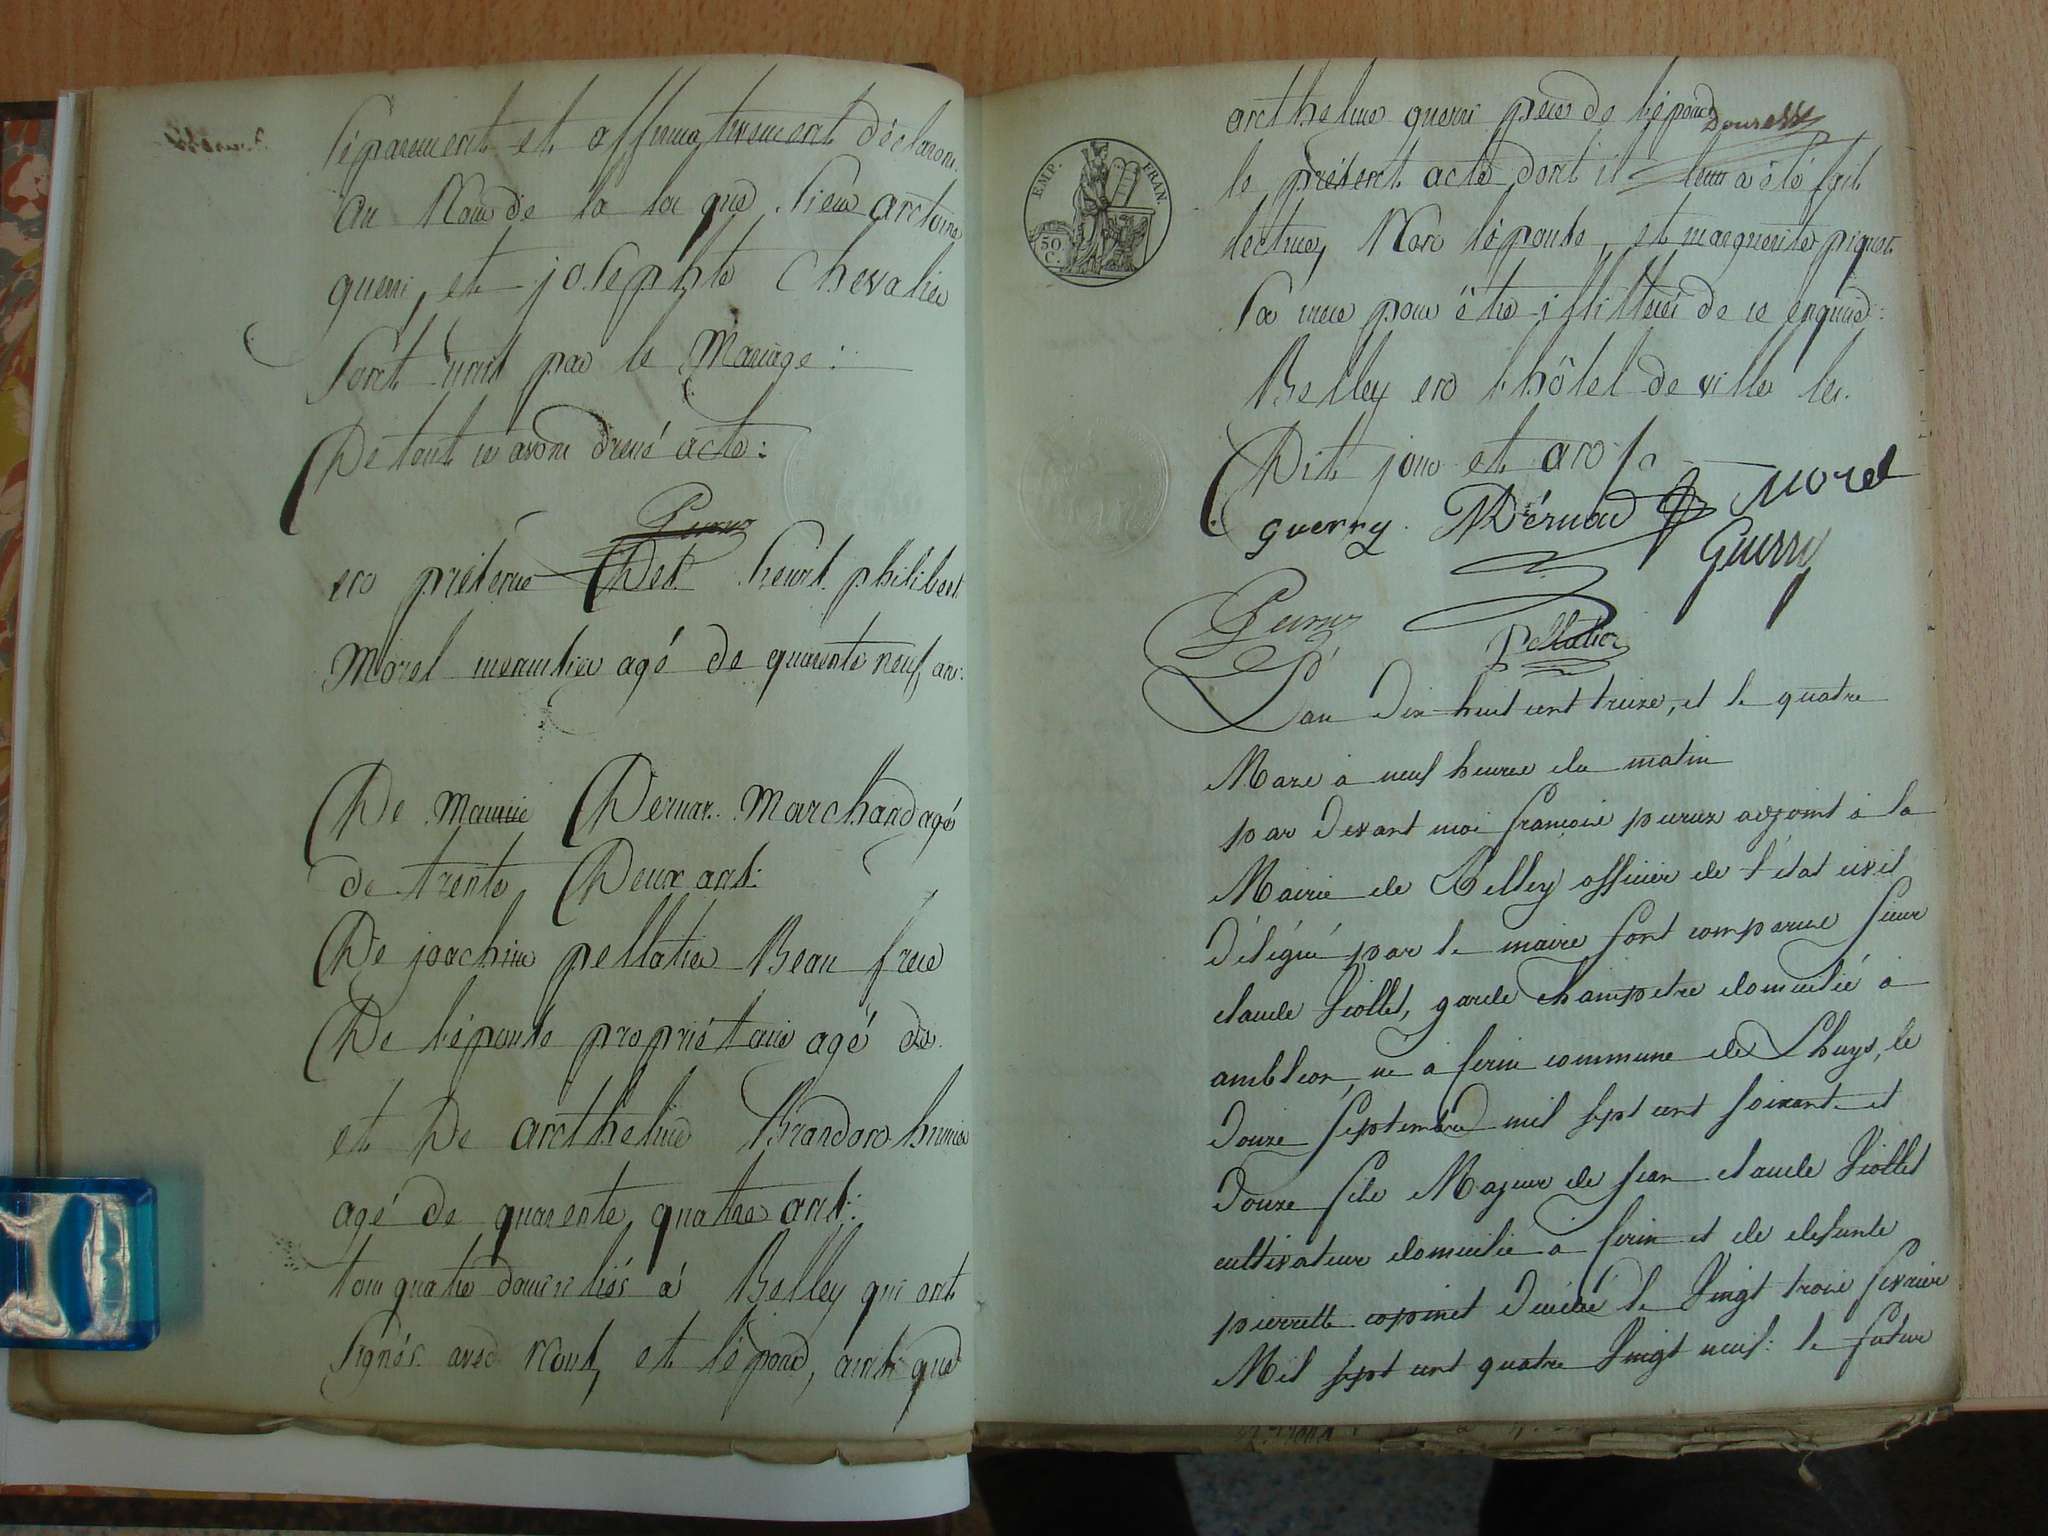 Séparement et affirmativement déclarons
au Nom de la loi que Sieur antoine
guerri, et josephte Chevalier
Sont unit par le Mariage :
De tout ce avons dressé acte :
Peruz
en présence Des Sieurs philibert
Morel menuisier agé de quarente neuf ans :
De Maurice Dernar Marchand agé
de trente Deux ans :
De joachim pellatier Beau frere
De l'épouse propriétaire agé de
et De anthelme Brandon huissier
agé de quarente quatre ans :
tous quatre domiciliés à Belley qui ont
Signés avec Nous, et l'époux, ainsi que
anthelme guerri pere de l'époux
EMP. FRAN.
50 C.
le présent acte dont il leur a été fait
lecture, Non l'épouse, et marguerite piquet
Sa mere pour être illitteré de ce enquise :
Belley en l'hôtel de ville les
Dit jour et an
Morel
guerry. Dérnad
Guerry
Peruz
Pellatier
L'an Dix huit cent treize, et le quatre
Mars à neuf heures du matin
par devant moi françois peruz adjoint à la
Mairie de Belley officier de l'état civil
Délégué par le maire sont comparus Sieur
claude Viollet, garde champetre domicilié à
ambleon, né à serin commune de Lhuys, le
Douze Septembre mil sept cent soixante et
Douze fils Majeur de jean claude Viollet
cultivateur domicilié à serin et de defunte
pierrette copinet Décédé le Vingt trois fevrier
Mil sept cent quatre Vingt neuf : le futur